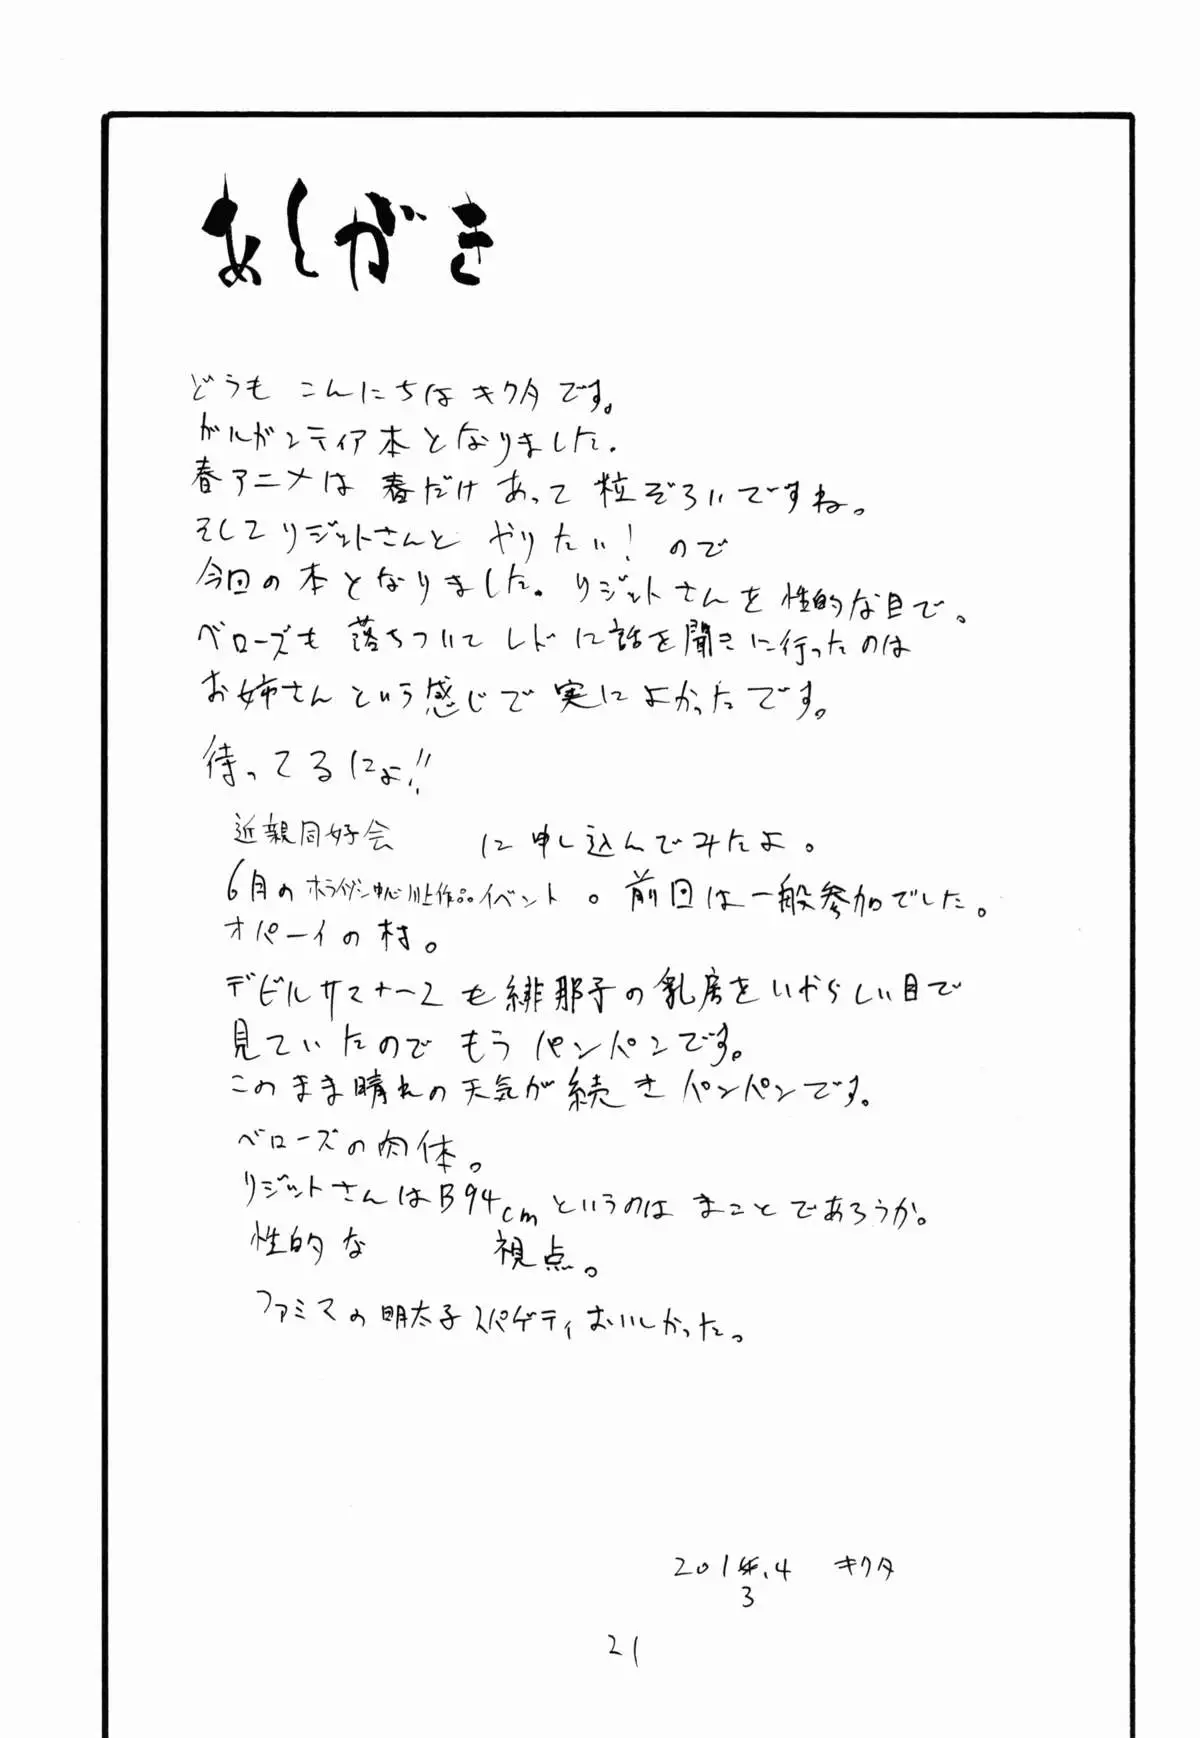 あとがき
どうも こんにちは キクタです。
ガルガンティア本となりました。
春アニメは 春だけあって 粒ぞろいですね。
そしてリジットさんと やりたい!ので
今回の本となりました。リジットさんを性的な目で。
ベローズも 落ちついてレドに話を聞きに行ったのは
お姉さんという感じで実によかったです。
待ってるにょ!!
近親同好会 に申し込んでみたよ。
6月のホライゾン中心川上作品イベント。前回は一般参加でした。
オパーイの村。
デビルサマナー2も緋那子の乳房をいやらしい目で
見ていたので もうパンパンです。
このまま晴れの天気が続きパンパンです。
ベローズの肉体。
リジットさんはB94cmというのは まことであろうか。
性的な 視点。
ファミマの明太子スパゲティおいしかった。
2013.4 キクタ
21